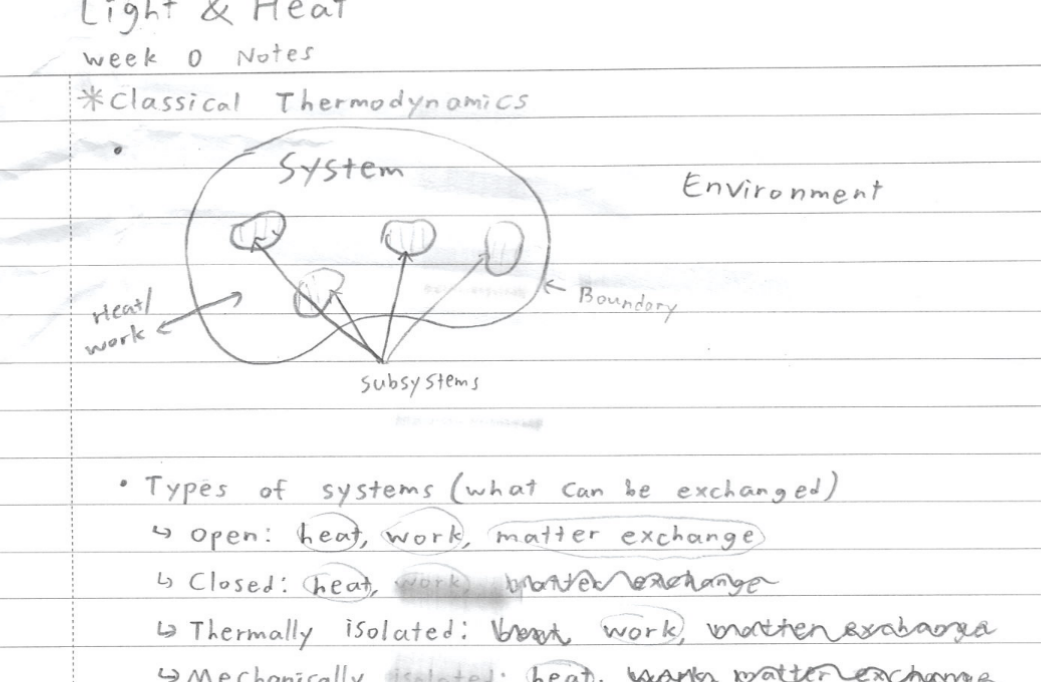 Light & Heat
Week 0 Notes
*Classical Thermodynamics
•
System
Environment
Heat/
work
← Boundary
subsystems
• Types of systems (what can be exchanged)
↳ Open: heat, work, matter exchange
↳ Closed: heat, work, matter exchange
↳ Thermally isolated: heat, work, matter exchange
↳ Mechanically isolated: heat, work, matter exchange